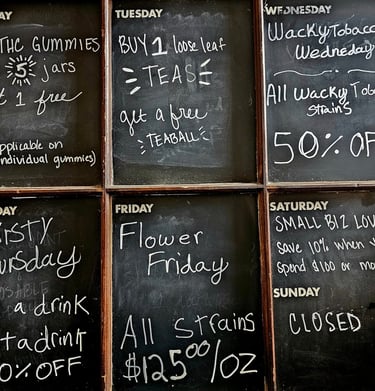 Y
THC GUMMIES
5 jars
t 1 free
applicable on
individual gummies)
TUESDAY
BUY 1 loose leaf
TEAS
get a free
TEABALL
WEDNESDAY
Wacky Tobacc
Wednesday
All Wacky Tob
Strains
50% OF
DAY
isty
ursday
a drink
t a drink
0% OFF
FRIDAY
Flower
Friday
All Strains
$125.00/OZ
SATURDAY
SMALL BIZ LOV
Save 10% when y
Spend $100 or mo
SUNDAY
CLOSED